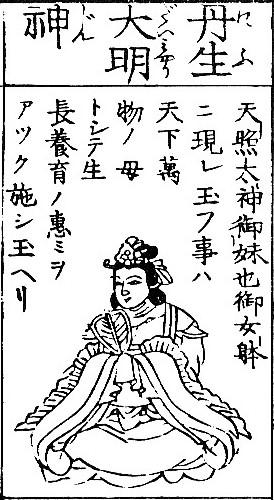 丹生
にふ
大明
だいミやう
神
じん
天照太神御妹也御女躰
ニ現レ玉フ事ハ
天下萬
物ノ母
トシテ生
長養育ノ惠ミヲ
アツク施シ玉ヘリ